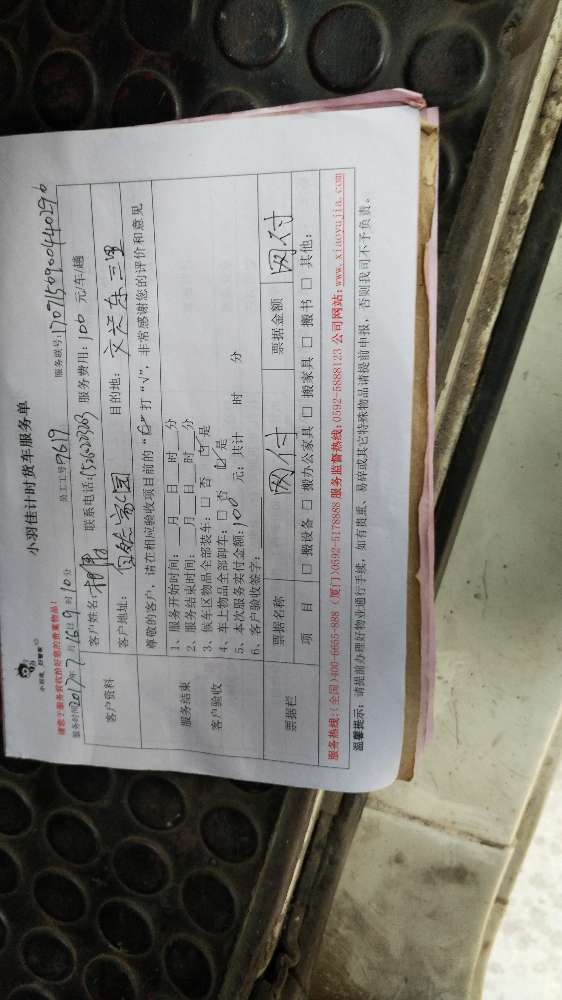 小羽佳计时货车服务单
小羽佳 好管家
请您于服务前收拾好您的贵重物品!
员工工号:7619 服务联号:17071509004440296
服务时间2017年7月16日9时10分
客户资料
客户姓名: 联系电话: 服务费用:100元/车/趟
客户地址: 自然家园 目的地: 文兴东三里
尊敬的客户,请在相应验收项目前的“□”打“√”,非常感谢您的评价和意见
服务结束
客户验收
1、服务开始时间: 月 日 时 分
2、服务结束时间: 月 日 时 分
3、候车区物品全部装车:□ 否 ☑ 是
4、车上物品全部卸车:□ 否 ☑ 是
5、本次服务实付金额:100元;共计 时 分
6、客户验收签字:
票据栏
票据名称 网付 票据金额 网付
项 目 □ 搬设备 □ 搬办公家具 □ 搬家具 □ 搬书 □ 其他:
服务热线:(全国)400-6655-888 (厦门)0592-5178888 服务监督热线:0592-5888123 公司网站:www.xiaoyujia.com
温馨提示:请提前办理好物业通行手续,如有贵重、易碎或其它特殊物品请提前申报,否则我司不予负责。